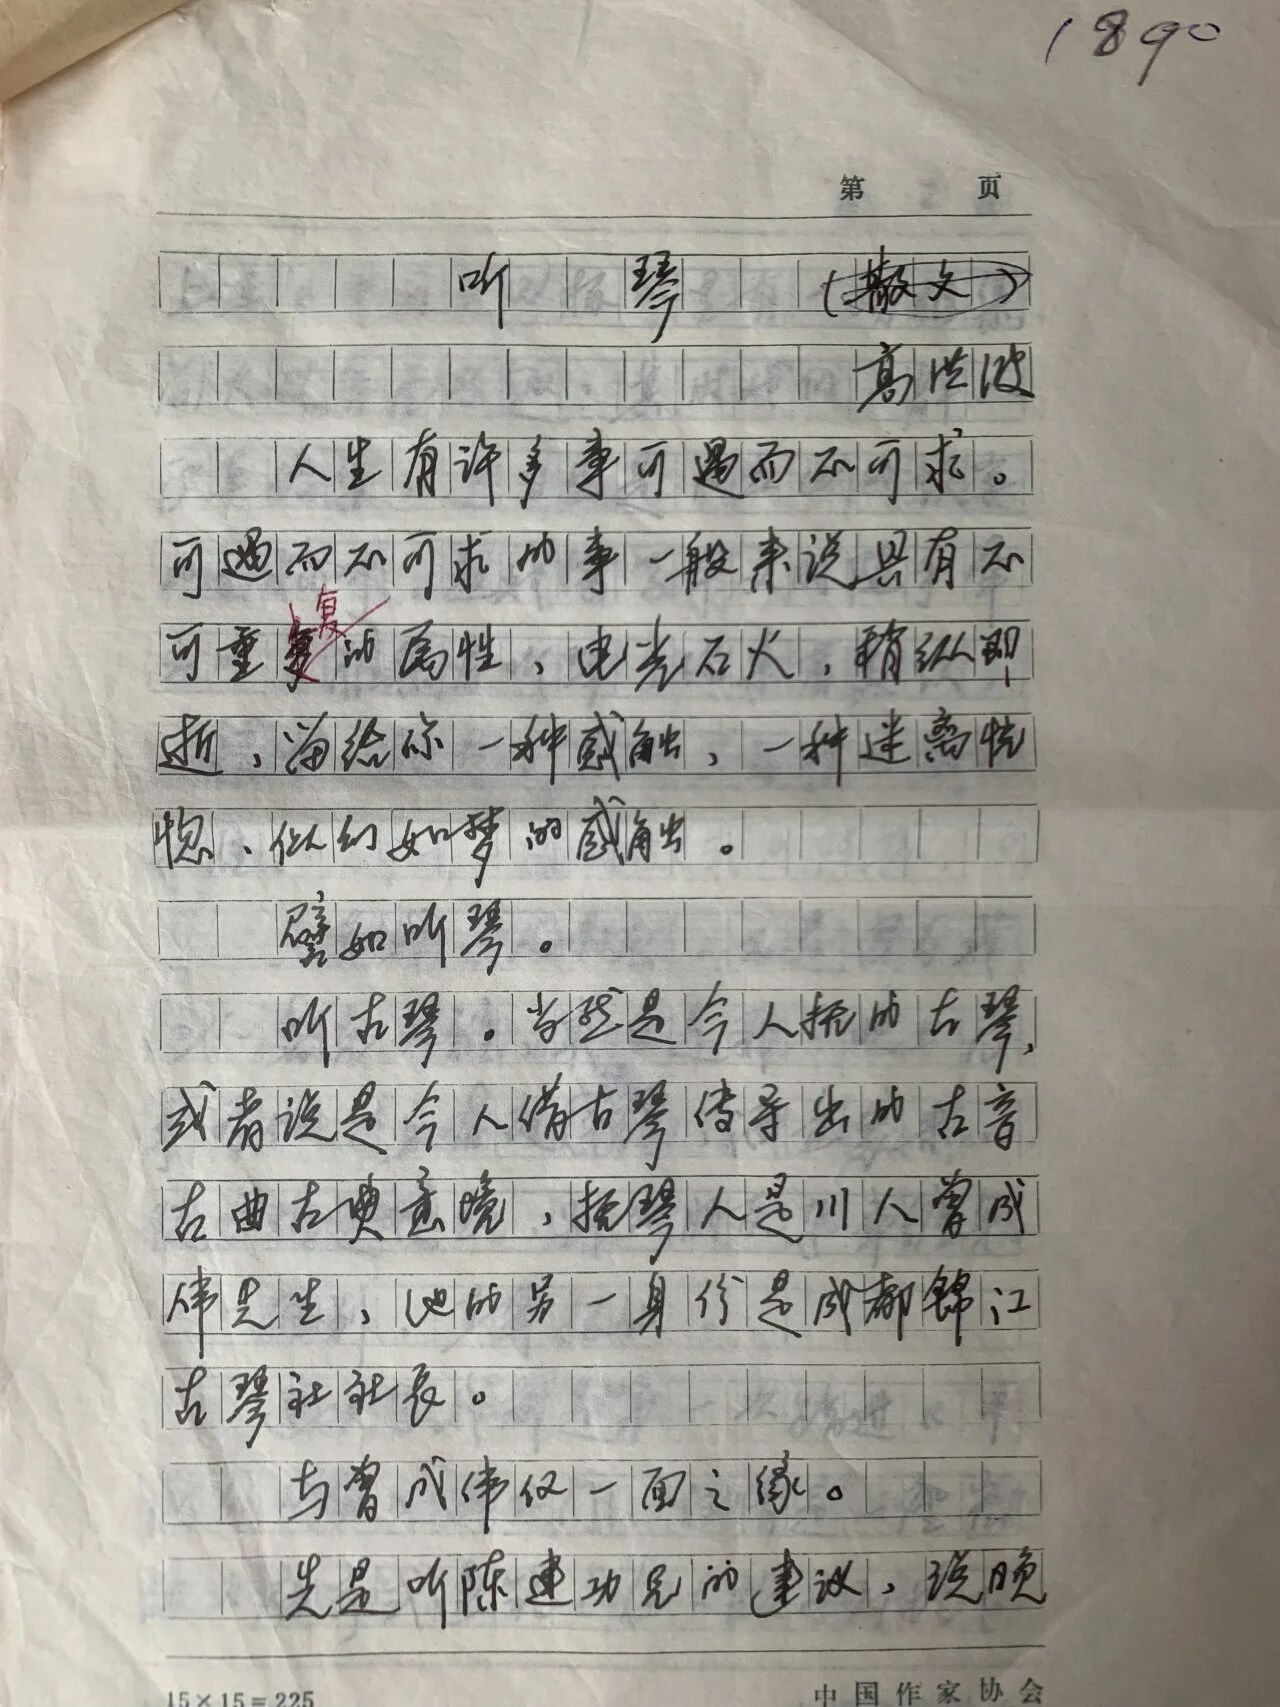 1890
第 页
听 琴 (散文)
高洪波
人生有许多事可遇而不可求。
可遇而不可求的事一般来说具有不
复
可重复的属性，电光石火，稍纵即
逝，留给你一种感触，一种迷离恍
惚、似幻如梦的感触。
譬如听琴。
听古琴。当然是今人抚的古琴，
或者说是今人借古琴传导出的古音
古曲古典意境，抚琴人是川人曾成
伟先生，他的另一身份是成都锦江
古琴社社长。
与曾成伟仅一面之缘。
先是听陈建功兄的建议，说晚
15×15=225 中国作家协会